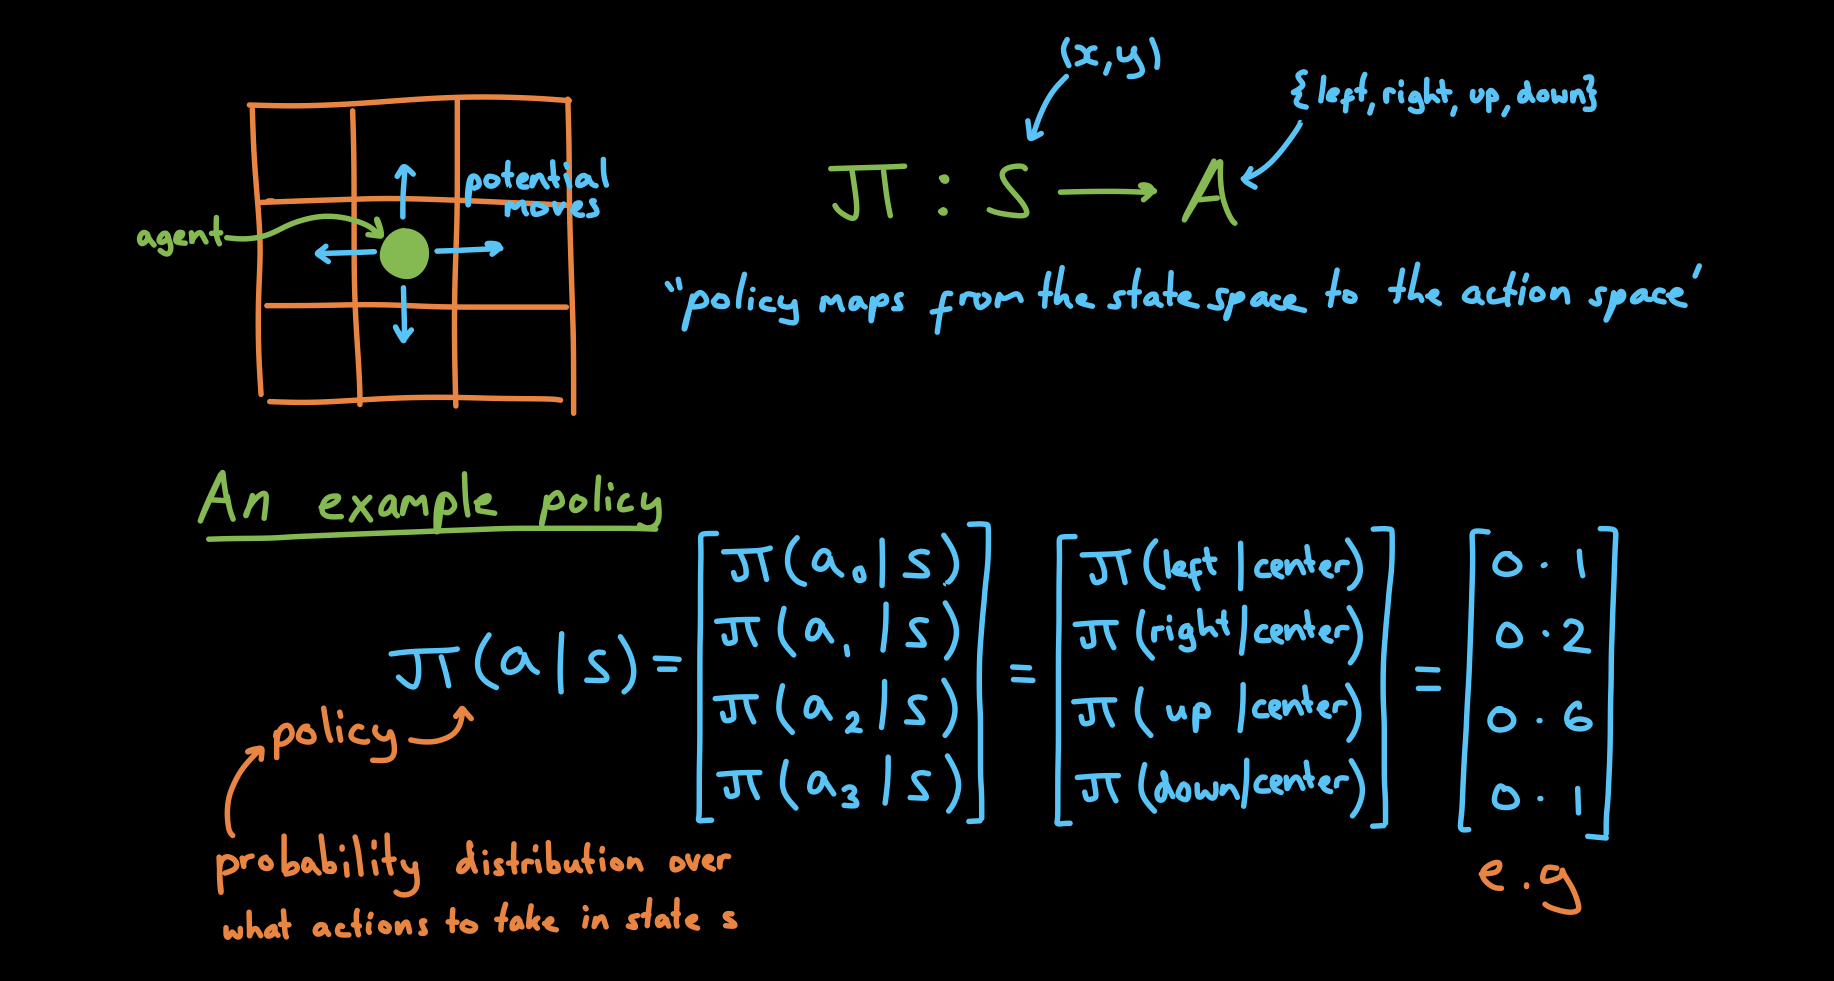 (x,y)
{left, right, up, down}
potential
moves
agent
π : S → A
"policy maps from the state space to the action space"
An example policy
π(a|s) = [π(a₀|s) π(a₁|s) π(a₂|s) π(a₃|s)] = [π(left|center) π(right|center) π(up|center) π(down|center)] = [0.1 0.2 0.6 0.1]
policy
probability distribution over
what actions to take in state s
e.g